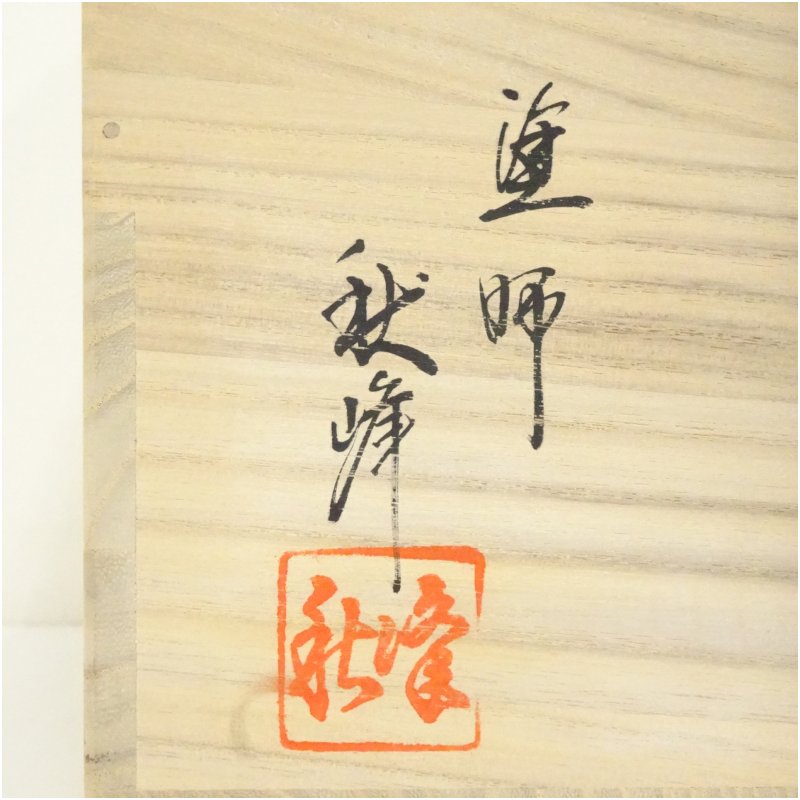 塗師
秋峰
秋峰